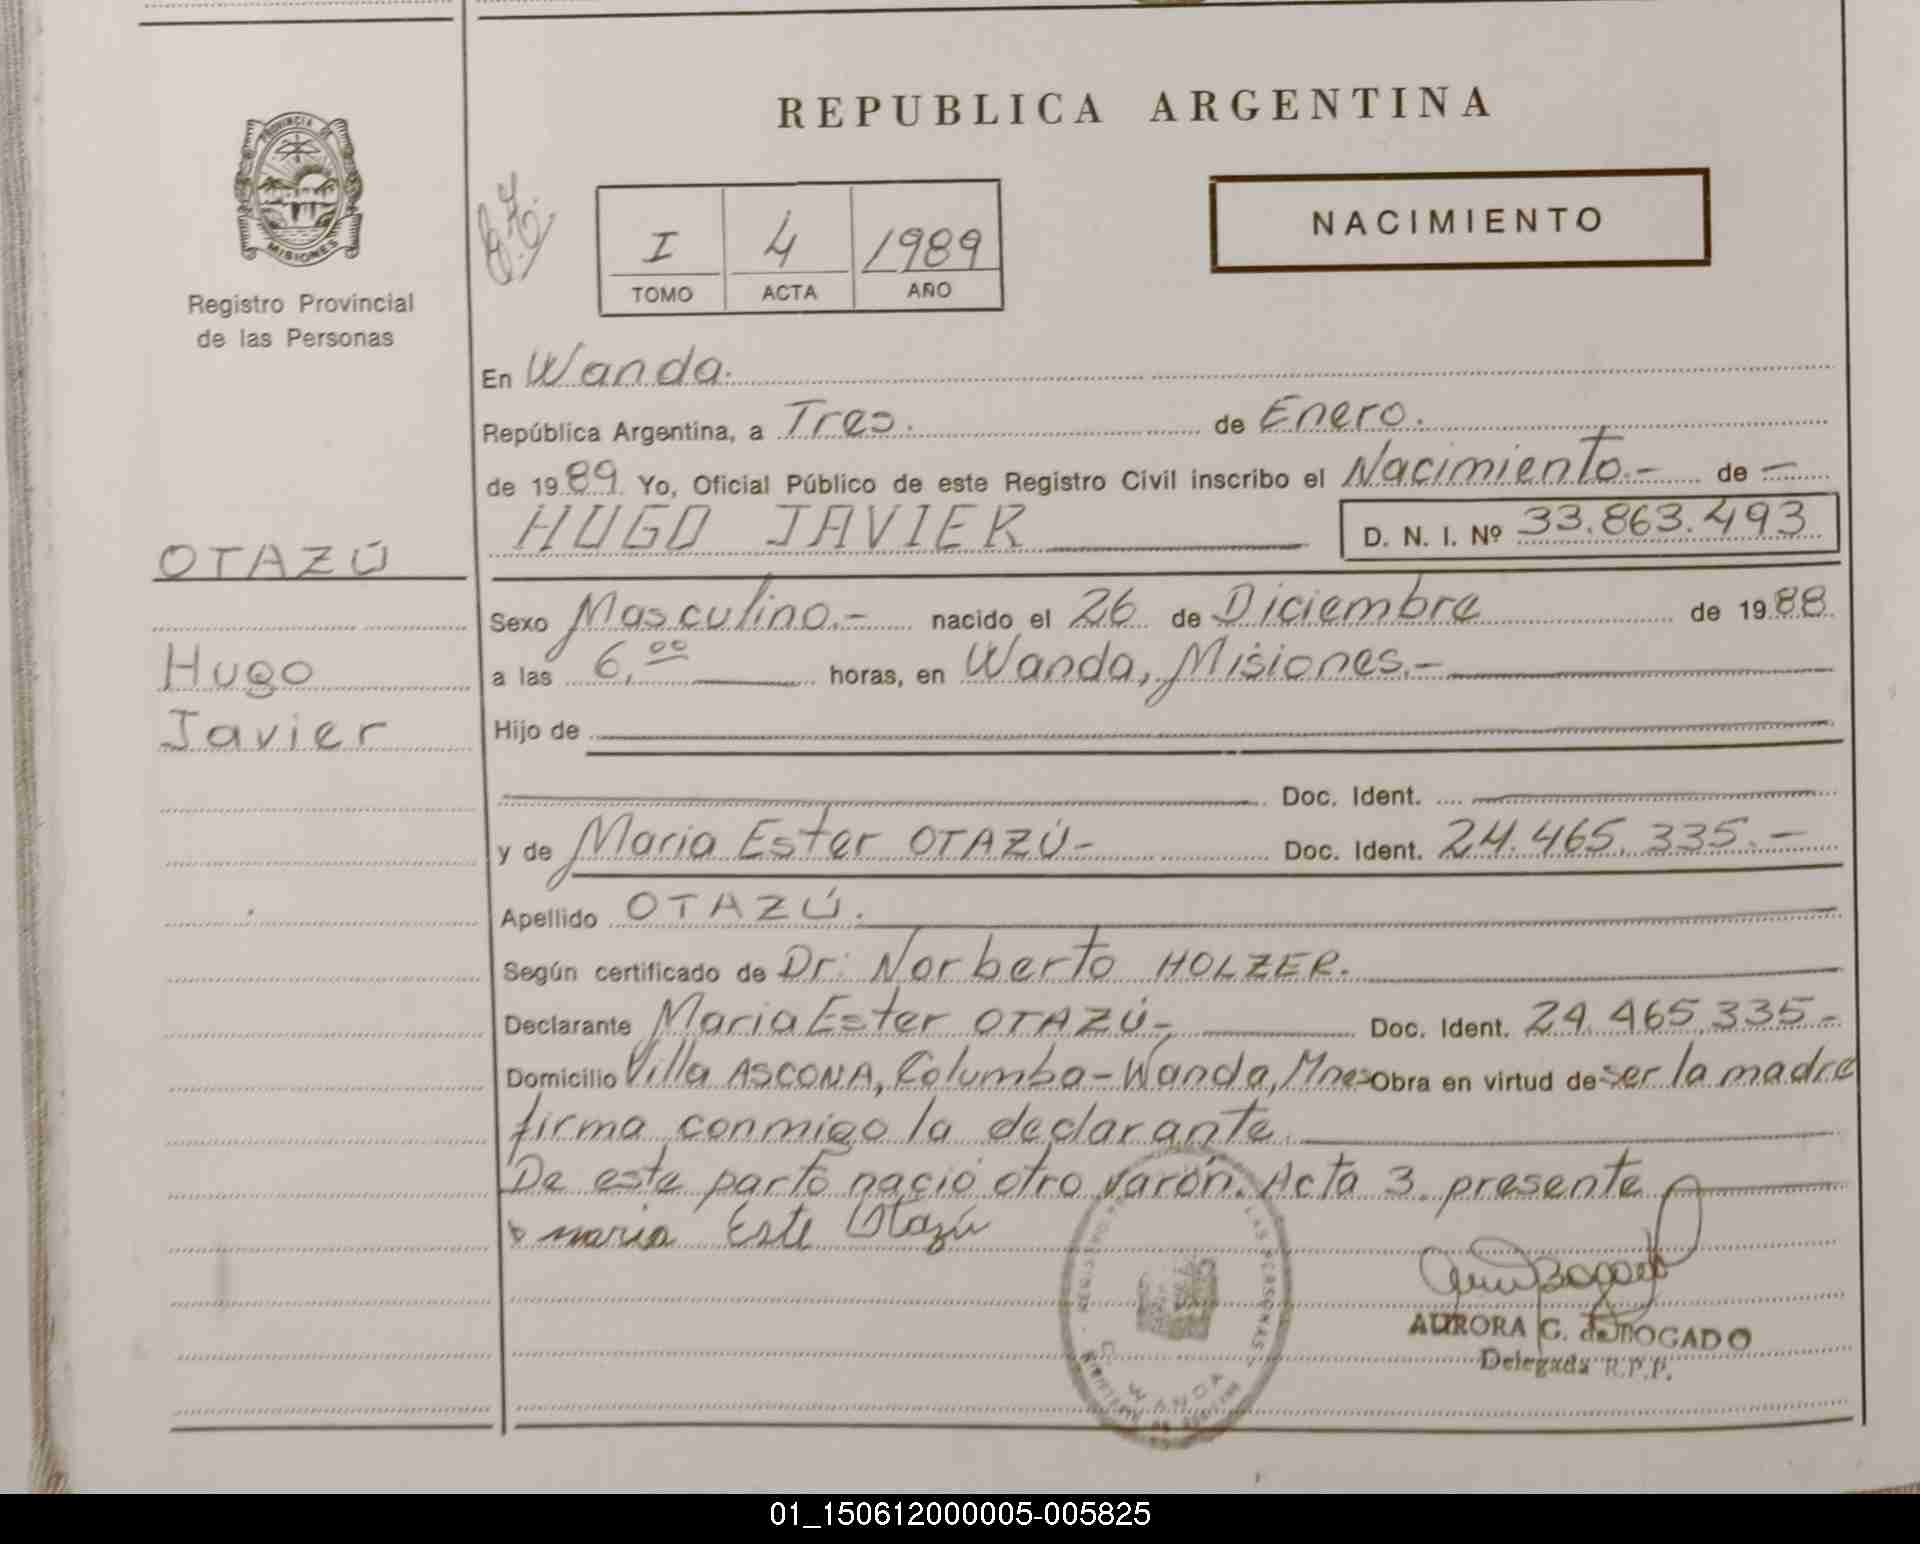 REPUBLICA ARGENTINA
PROVINCIA DE
MISIONES
Registro Provincial
de las Personas
NACIMIENTO
I 4 1989
TOMO ACTA AÑO
En Wanda.
República Argentina, a Tres. de Enero.
de 1989. Yo, Oficial Público de este Registro Civil inscribo el Nacimiento.- de -
HUGO JAVIER D. N. I. Nº 33.863.493
OTAZÚ
Hugo
Javier
Sexo Masculino.- nacido el 26 de Diciembre de 1988
a las 6,00 horas, en Wanda, Misiones.-
Hijo de
Doc. Ident.
y de Maria Ester OTAZÚ- Doc. Ident. 24.465.335.-
Apellido OTAZÚ.
Según certificado de Dr. Norberto HOLZER.
Declarante Maria Ester OTAZÚ- Doc. Ident. 24.465.335-
Domicilio Villa ASCONA, Columba-Wanda, Mnes Obra en virtud de ser la madre
firma conmigo la declarante.
De este parto nació otro varón. Acta 3. presente
maria Este Otazú
LAS PERSONAS
WANDA
AURORA C. de BOGADO
Delegada R.P.P.
01_150612000005-005825